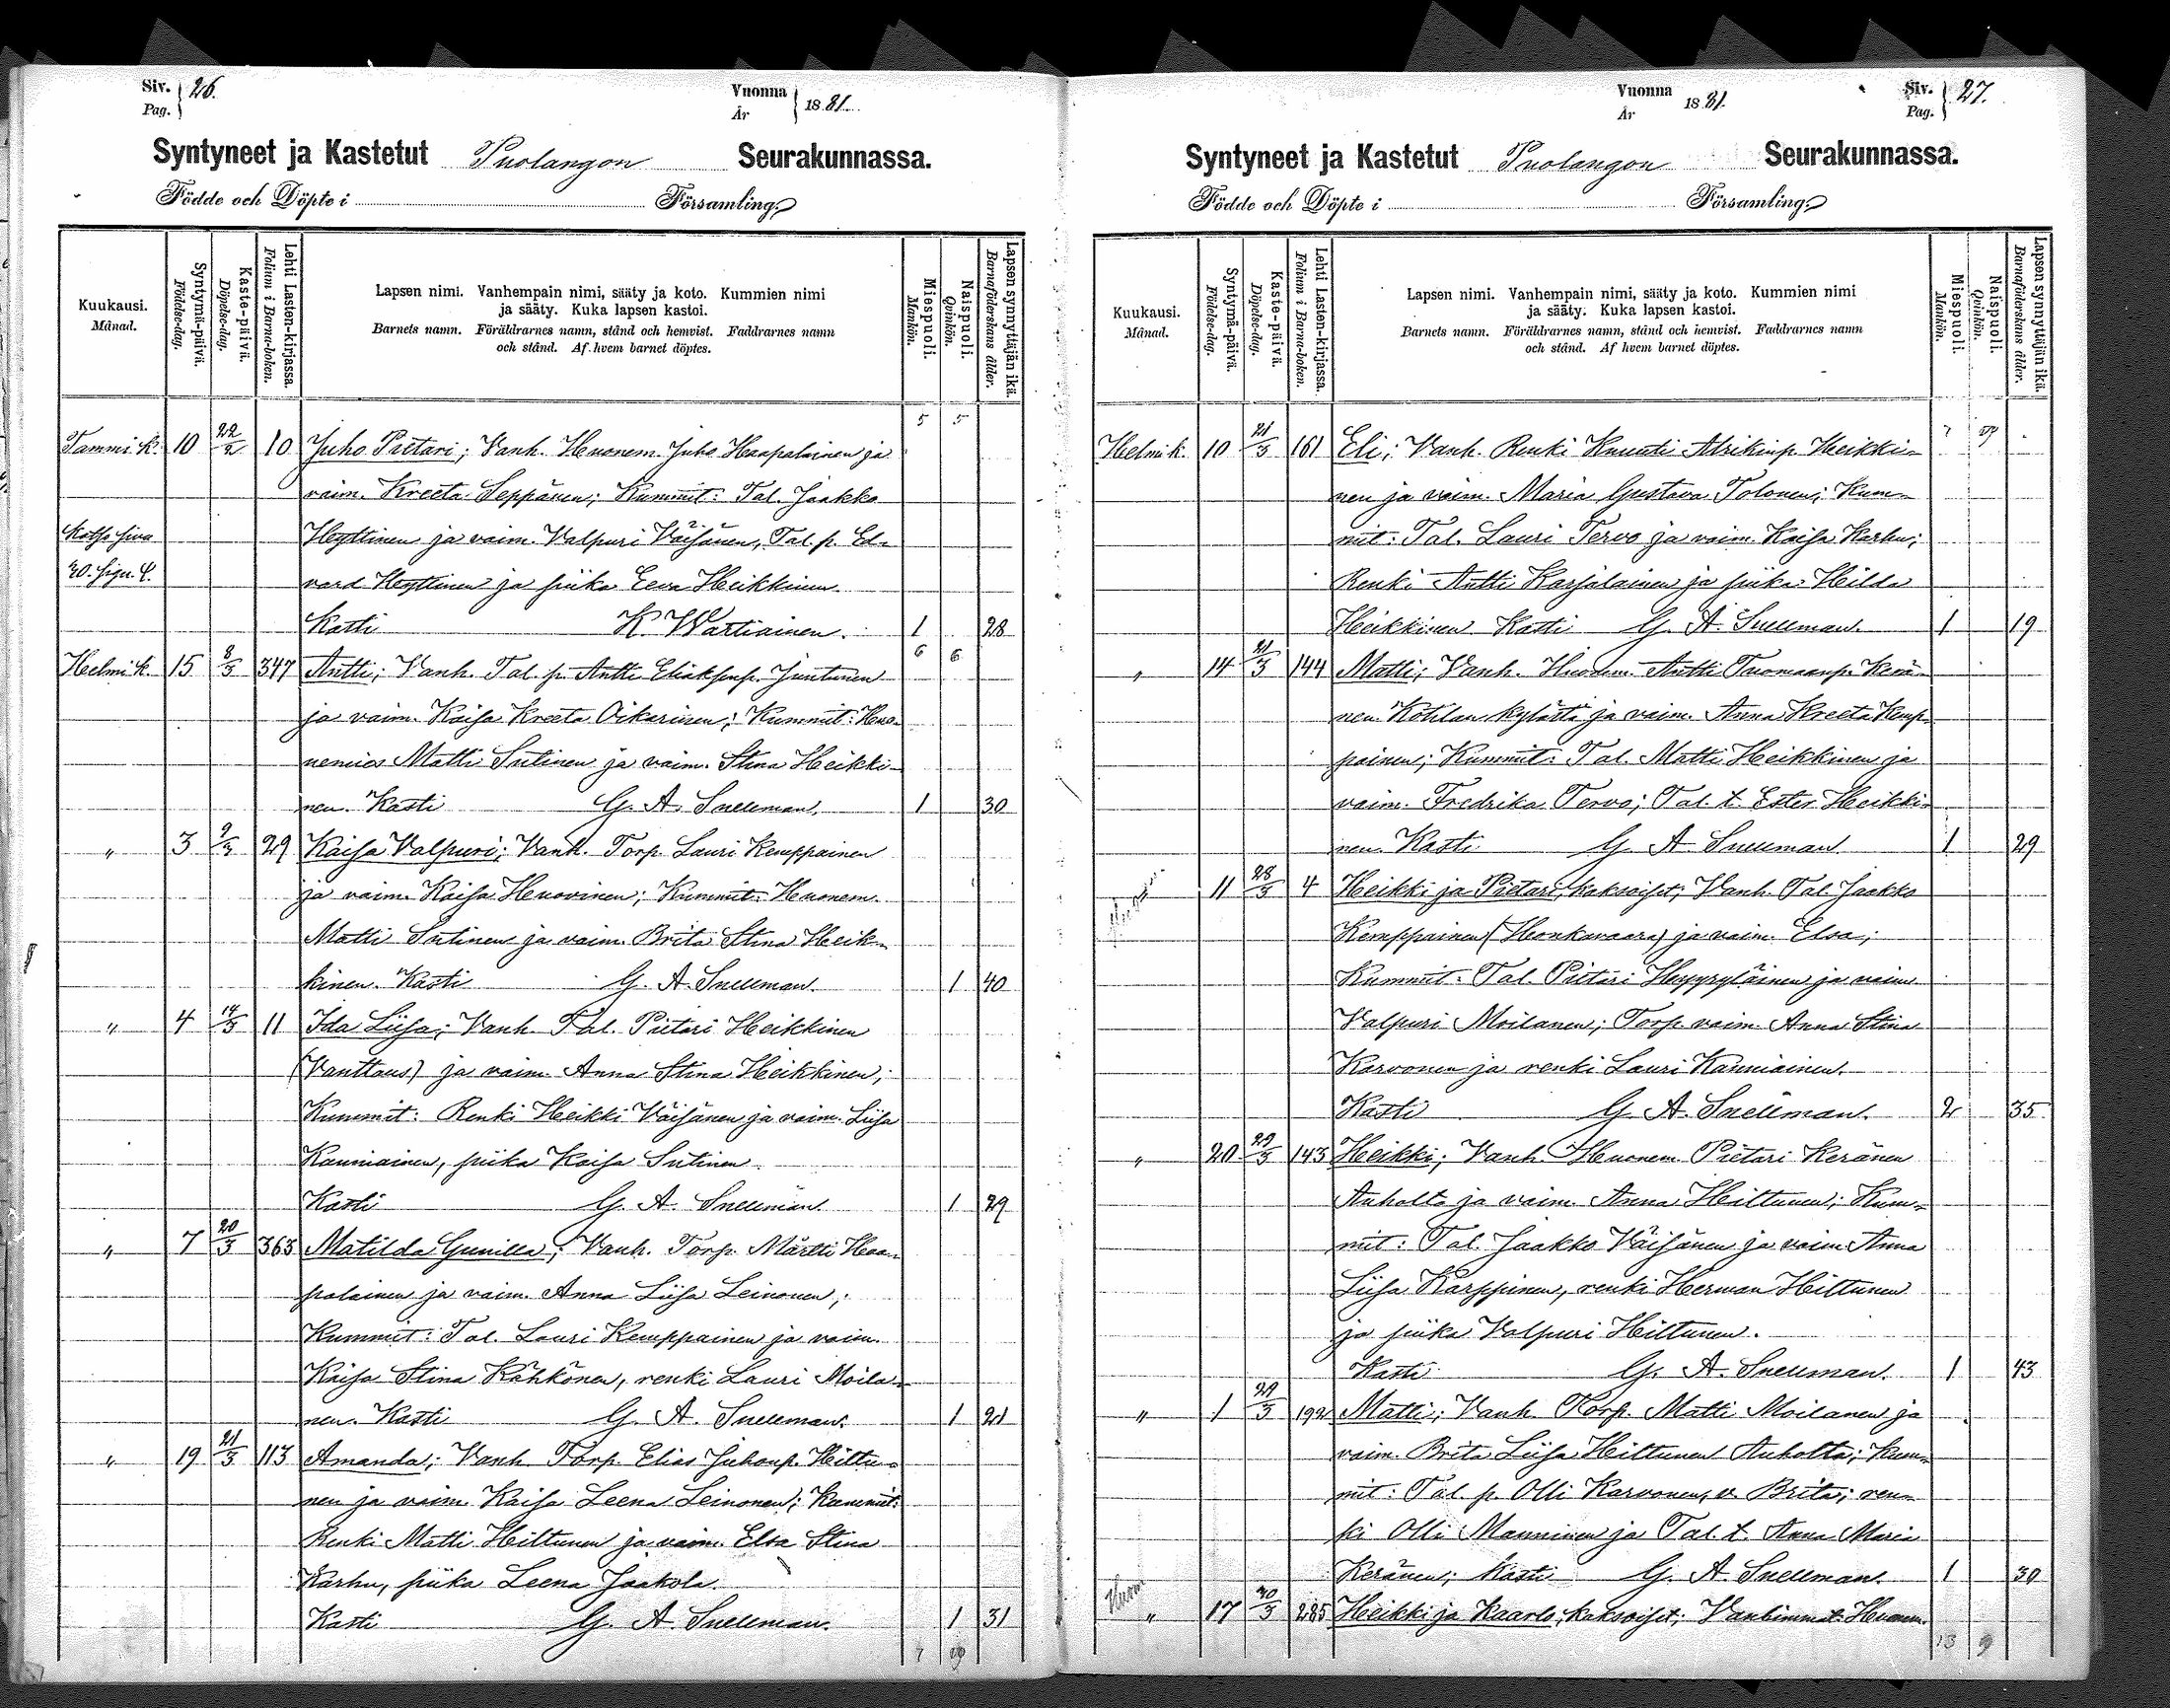 Siv. 26.
Pag.
Vuonna 1881.
År
Syntyneet ja Kastetut Puolangon Seurakunnassa.
Födde och Döpte i Församling.
Kuukausi.
Månad.
Syntymä-päivä.
Födelse-dag.
Kaste-päivä.
Döpelse-dag.
Lehti Lasten-kirjassa.
Folium i Barna-boken.
Lapsen nimi. Vanhempain nimi, sääty ja koto. Kummien nimi
ja sääty. Kuka lapsen kastoi.
Barnets namn. Föräldrarnes namn, stånd och hemvist. Faddrarnes namn
och stånd. Af hvem barnet döptes.
Miespuoli.
Mankön.
Naispuoli.
Qvinkön.
Lapsen synnyttäjän ikä.
Barnaföderskans ålder.
5 5
Tammi k. 10 22/2 10 Juho Pietari; Vanh. Huonem. Juho Haapalainen ja
vaim. Kreeta Seppänen; Kummit: Tal. Jaakko
Katso siva Heyttinen ja vaim. Valpuri Väisänen, Tal. p. Ed-
vard Heyttinen ja piika Eeva Heikkinen.
Kasti K. Wartiainen. 1 28
6 6
Helmi k. 15 8/3 347 Antti; Vanh. Tal. p. Antti Eliaksenp. Juntunen
ja vaim. Kaisa Kreeta Oikarinen; Kummit: Huo-
nemies Matti Sutinen ja vaim. Stina Heikki-
nen. Kasti G. A. Snellman. 1 30
„ 3 9/3 29 Kaisa Valpuri; Vanh. Torp. Lauri Kemppainen
ja vaim. Kaisa Huovinen; Kummit: Huonem.
Matti Sutinen ja vaim. Brita Stina Heik-
kinen. Kasti G. A. Snellman. 1 40
„ 4 14/3 11 Ida Liisa; Vanh. Tal. Pietari Heikkinen
(Vanttaus) ja vaim. Anna Stina Heikkinen;
Kummit: Renki Heikki Väisänen ja vaim. Liisa
Kanniainen, piika Kaisa Sutinen
Kasti G. A. Snellman. 1 29
„ 7 20/3 363 Matilda Gunilla; Vanh. Torp. Martti Haa-
palainen ja vaim. Anna Liisa Leinonen;
Kummit: Tal. Lauri Kemppainen ja vaim.
Kaisa Stina Kähkönen, renki Lauri Moila-
nen. Kasti G. A. Snellman. 1 21
„ 19 21/3 113 Amanda; Vanh. Torp. Elias Juhonp. Hiltu-
nen ja vaim. Kaisa Leena Leinonen; Kummit:
Renki Matti Hiltunen ja vaim. Elsa Stina
Karhu, piika Leena Jaakola.
Kasti G. A. Snellman. 1 31
7 9
Vuonna 1881.
År
Siv. 27.
Pag.
Syntyneet ja Kastetut Puolangon Seurakunnassa.
Födde och Döpte i Församling.
Kuukausi.
Månad.
Syntymä-päivä.
Födelse-dag.
Kaste-päivä.
Döpelse-dag.
Lehti Lasten-kirjassa.
Folium i Barna-boken.
Lapsen nimi. Vanhempain nimi, sääty ja koto. Kummien nimi
ja sääty. Kuka lapsen kastoi.
Barnets namn. Föräldrarnes namn, stånd och hemvist. Faddrarnes namn
och stånd. Af hvem barnet döptes.
Miespuoli.
Mankön.
Naispuoli.
Qvinkön.
Lapsen synnyttäjän ikä.
Barnaföderskans ålder.
7 9
Helmi k. 10 21/3 161 Eli; Vanh. Renki Knuuti Heikki-
nen ja vaim. Maria Gustava Tolonen; Kum-
mit: Tal. Lauri Tervo ja vaim. Kaisa Karhu;
Renki Antti Karjalainen ja piika Hilda
Heikkinen Kasti G. A. Snellman. 1 19
„ 14 21/3 144 Matti; Vanh. Huonem. Antti Tuomaanp. Kerä-
nen Kotilan kylästä ja vaim. Anna Kreeta Kemp-
painen; Kummit: Tal. Matti Heikkinen ja
vaim. Fredrika Tervo; Tal. t. Ester Heikki-
nen. Kasti G. A. Snellman. 1 29
„ 11 28/3 4 Heikki ja Pietari, kaksoiset; Vanh. Tal. Jaakko
Kemppainen (Honkavaara) ja vaim. Elsa;
Kummit: Tal. Pietari Hyyryläinen ja vaim.
Valpuri Moilanen; Torp. vaim. Anna Stina
Karvonen ja renki Lauri Kanniainen.
Kasti G. A. Snellman. 2 35
„ 20 29/3 143 Heikki; Vanh. Huonem. Pietari Keränen
Auholta ja vaim. Anna Hiltunen; Kum-
mit: Tal. Jaakko Väisänen ja vaim. Anna
Liisa Karppinen, renki Herman Hiltunen
ja piika Valpuri Hiltunen.
Kasti G. A. Snellman. 1 43
„ 1 29/3 192 Matti; Vanh. Torp. Matti Moilanen ja
vaim. Brita Liisa Hiltunen Auholta; Kum-
mit: Tal. p. Olli Karvonen, v. Brita; ren-
ki Olli Manninen ja Tal. t. Anna Maria
Keränen; Kasti G. A. Snellman. 1 30
„ 17 30/3 285 Heikki ja Kaarlo, kaksoiset; Vanhimmat Huonem.
13 9